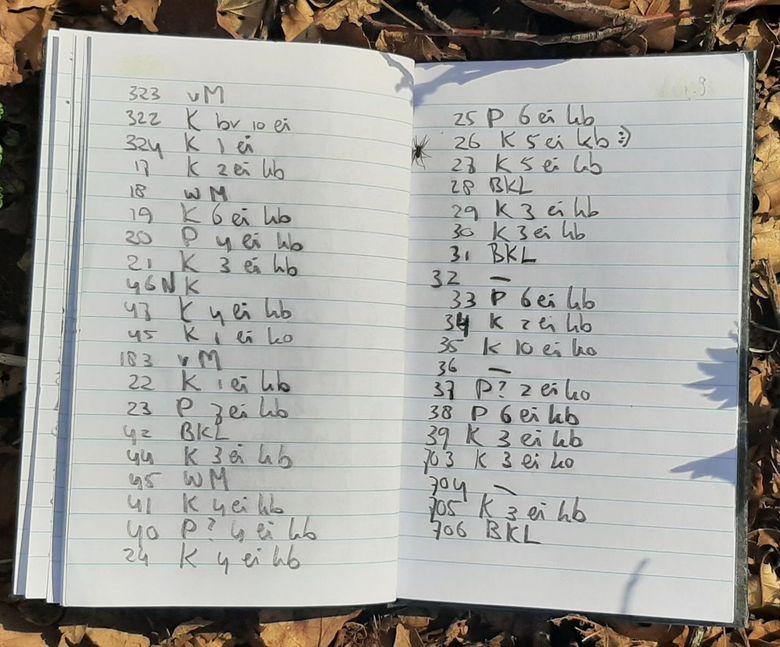 323 vM
322 K br 10 ei
324 K 1 ei
17 K 2 ei kb
18 WM
19 K 6 ei kb
20 P 4 ei kb
21 K 3 ei kb
46N K
43 K 4 ei kb
45 K 1 ei ko
183 vM
22 K 1 ei kb
23 P 7 ei kb
42 BKL
44 K 3 ei kb
45 WM
41 K 4 ei kb
40 P? 4 ei kb
24 K 4 ei kb
25 P 6 ei kb
26 K 5 ei kb :)
27 K 5 ei kb
28 BKL
29 K 3 ei kb
30 K 3 ei kb
31 BKL
32 —
33 P 6 ei kb
34 K 2 ei kb
35 K 10 ei ko
36 —
37 P? 2 ei ko
38 P 6 ei kb
39 K 3 ei kb
703 K 3 ei ko
704 —
705 K 3 ei kb
706 BKL